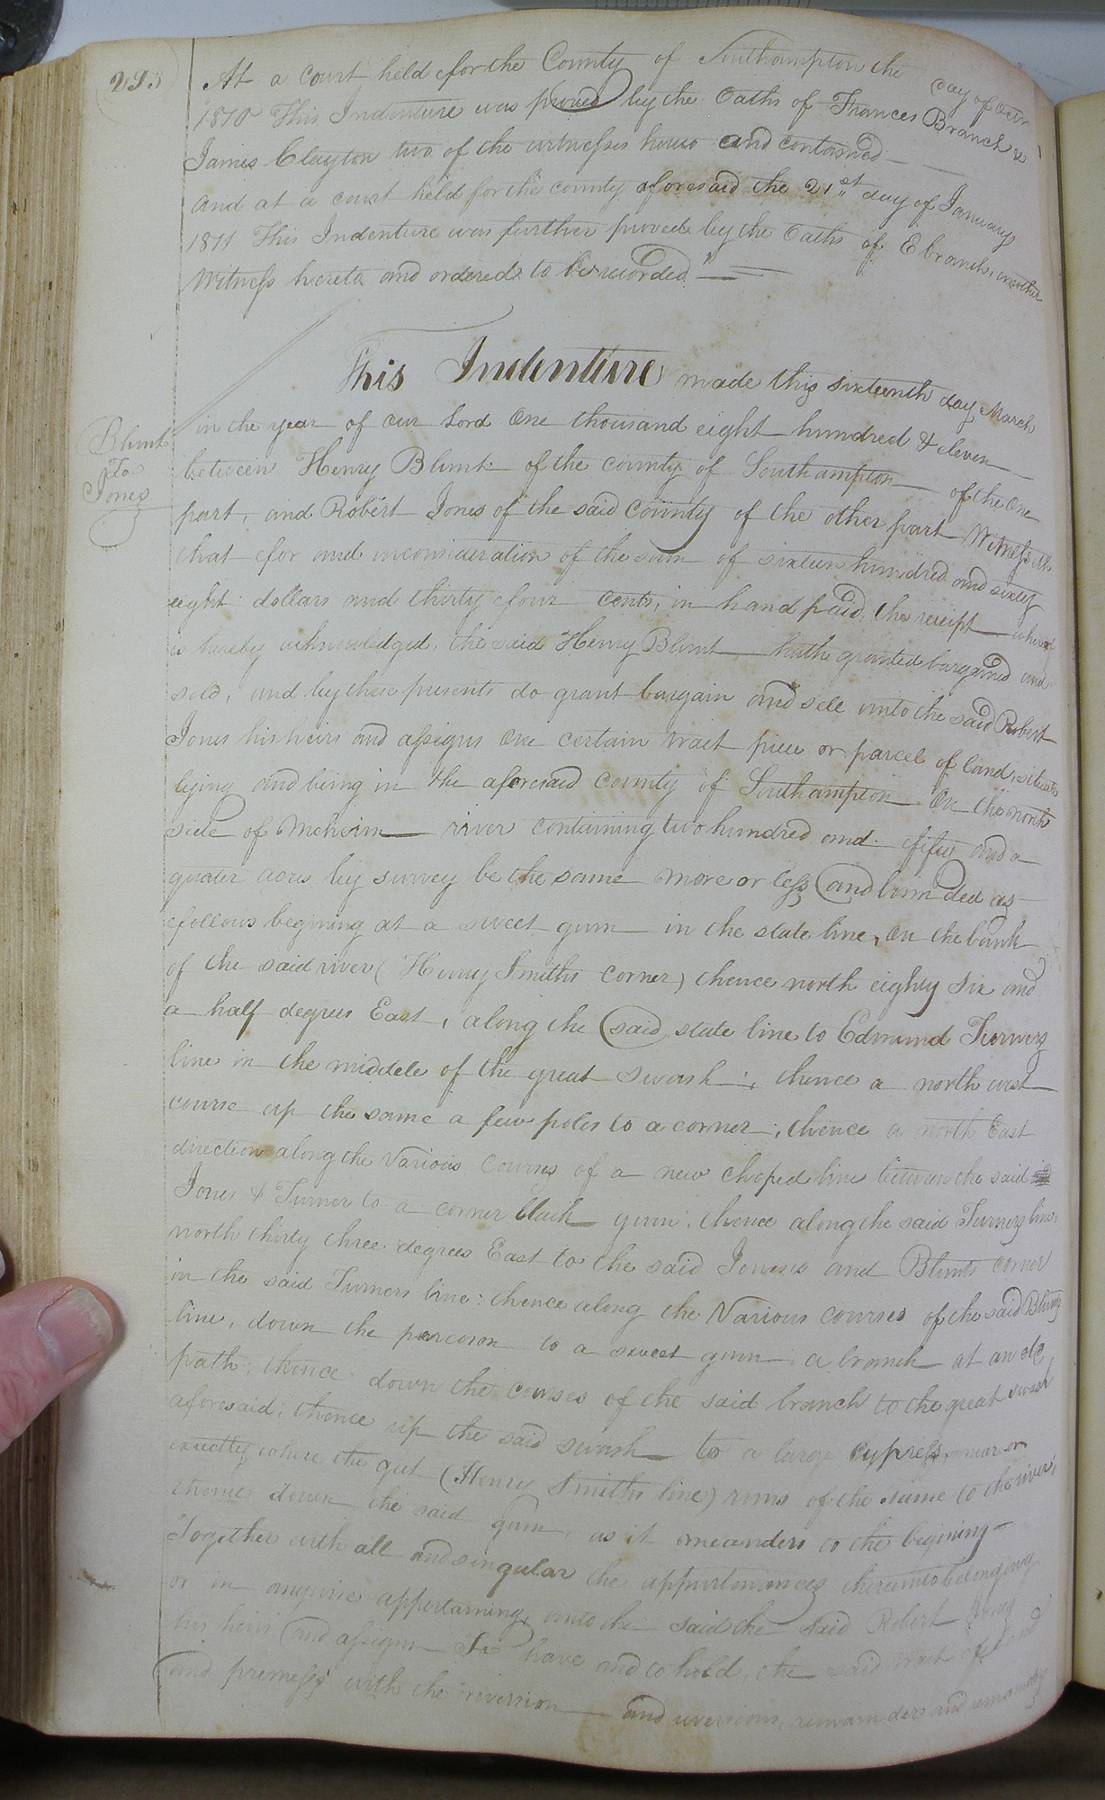 293
At a court held for the County of Southampton the day of Octr
1810 This Indenture was proved by the Oaths of Frances Branch &
James Clayton two of the witnesses hereto and contained
And at a court held for the county aforesaid the 21st day of January
1811 This Indenture was further proved by the Oaths of E branch, another
Witness hereto and ordered to be recorded
This Indenture made this sixteenth day March
in the year of our Lord One thousand eight hundred & eleven
Blunt
To
Jones
between Henry Blunt of the county of Southampton of the One
part, and Robert Jones of the said County of the other part Witnesseth
that for and inconsideration of the sum of sixteen hundred and sixty
eight dollars and thirty four cents, in hand paid, the receipt whereof
is hereby acknowledged, the said Henry Blunt hath granted bargained and
sold, and by these presents do grant bargain and sell unto the said Robert
Jones his heirs and assigns One certain tract piece or parcel of land, situate
lying and being in the aforesaid county of Southampton On the north
side of Meherin river containing two hundred and fifty and a
quater acres by survey be the same more or less and bounded as
follows begining at a sweet gum in the state line, On the bank
of the said river (Henry Smiths corner) thence north eighty Six and
a half degrees East, along the said state line to Edmund Turners
line in the middele of the great swash; thence a north west
course up the same a few poles to a corner; thence a north East
direction along the various courses of a new choped line between the said
Jones & Turner to a corner black gum; thence along the said Turners line
north thirty three degrees East to the said Joneses and Blunts corner
in the said Turners line: thence along the Various courses of the said Blunts
line, down the percoson to a sweet gum a branch at an old
path; thence down the courses of the said branch to the great swash
aforesaid; thence up the said swash to a large Cypress, near or
exactly where the gut (Henry Smiths line) runs of the same to the river;
thence down the said gum, as it meanders to the begining
Together with all and singular the appurtenances thereunto belonging
or in anywise appertaining unto the said the said Robert Jones
his heirs and assigns To have and to hold, the said track of land
and premises with the riversion and reversions, remainders and